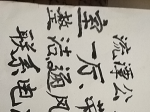 流潭公
室一厅、
整洁通风
联系电